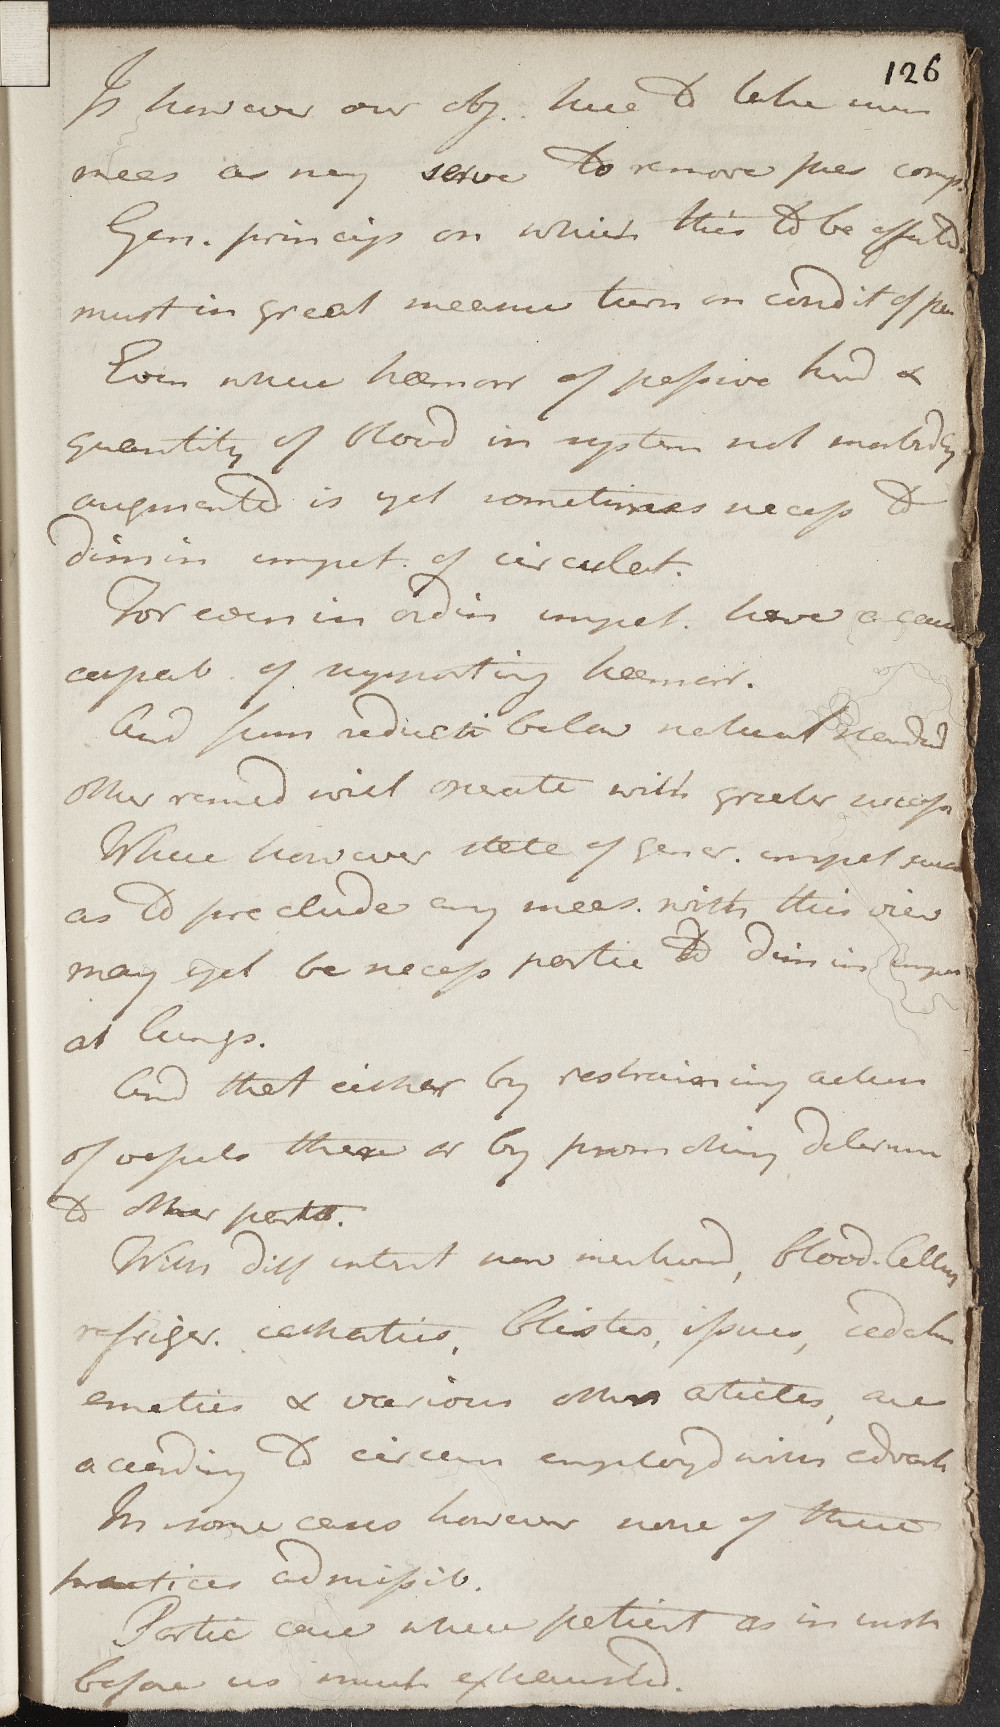 126
Is however our obj. here to take such
meas as may serve to remove pres comp.
Gen. princips on which this to be effected
must in great measure turn on condit of pa
Even where haemorr of passive kind &
quantity of blood in system not morbidly
augmented is yet sometimes necess to
dimin impet. of circulat.
For even in ordin impet. have a cause
capab. of supporting haemorr.
And from reducti below natural standard
other remed will operate with greater success
Where however state of gener. impet such
as to preclude any meas. with this view
may yet be necess partic to dimin impet
at lungs.
And that either by restraining action
of vessels there or by promoting determin
to other parts.
With diff intent now mentiond, blood-letting
refriger. cathartics, blisters, issues,
emetics & various other articles, are
according to circum employd with advant
In some cases however none of these
practices admissib.
Partic case where patient as in inst
before us much exhausted.